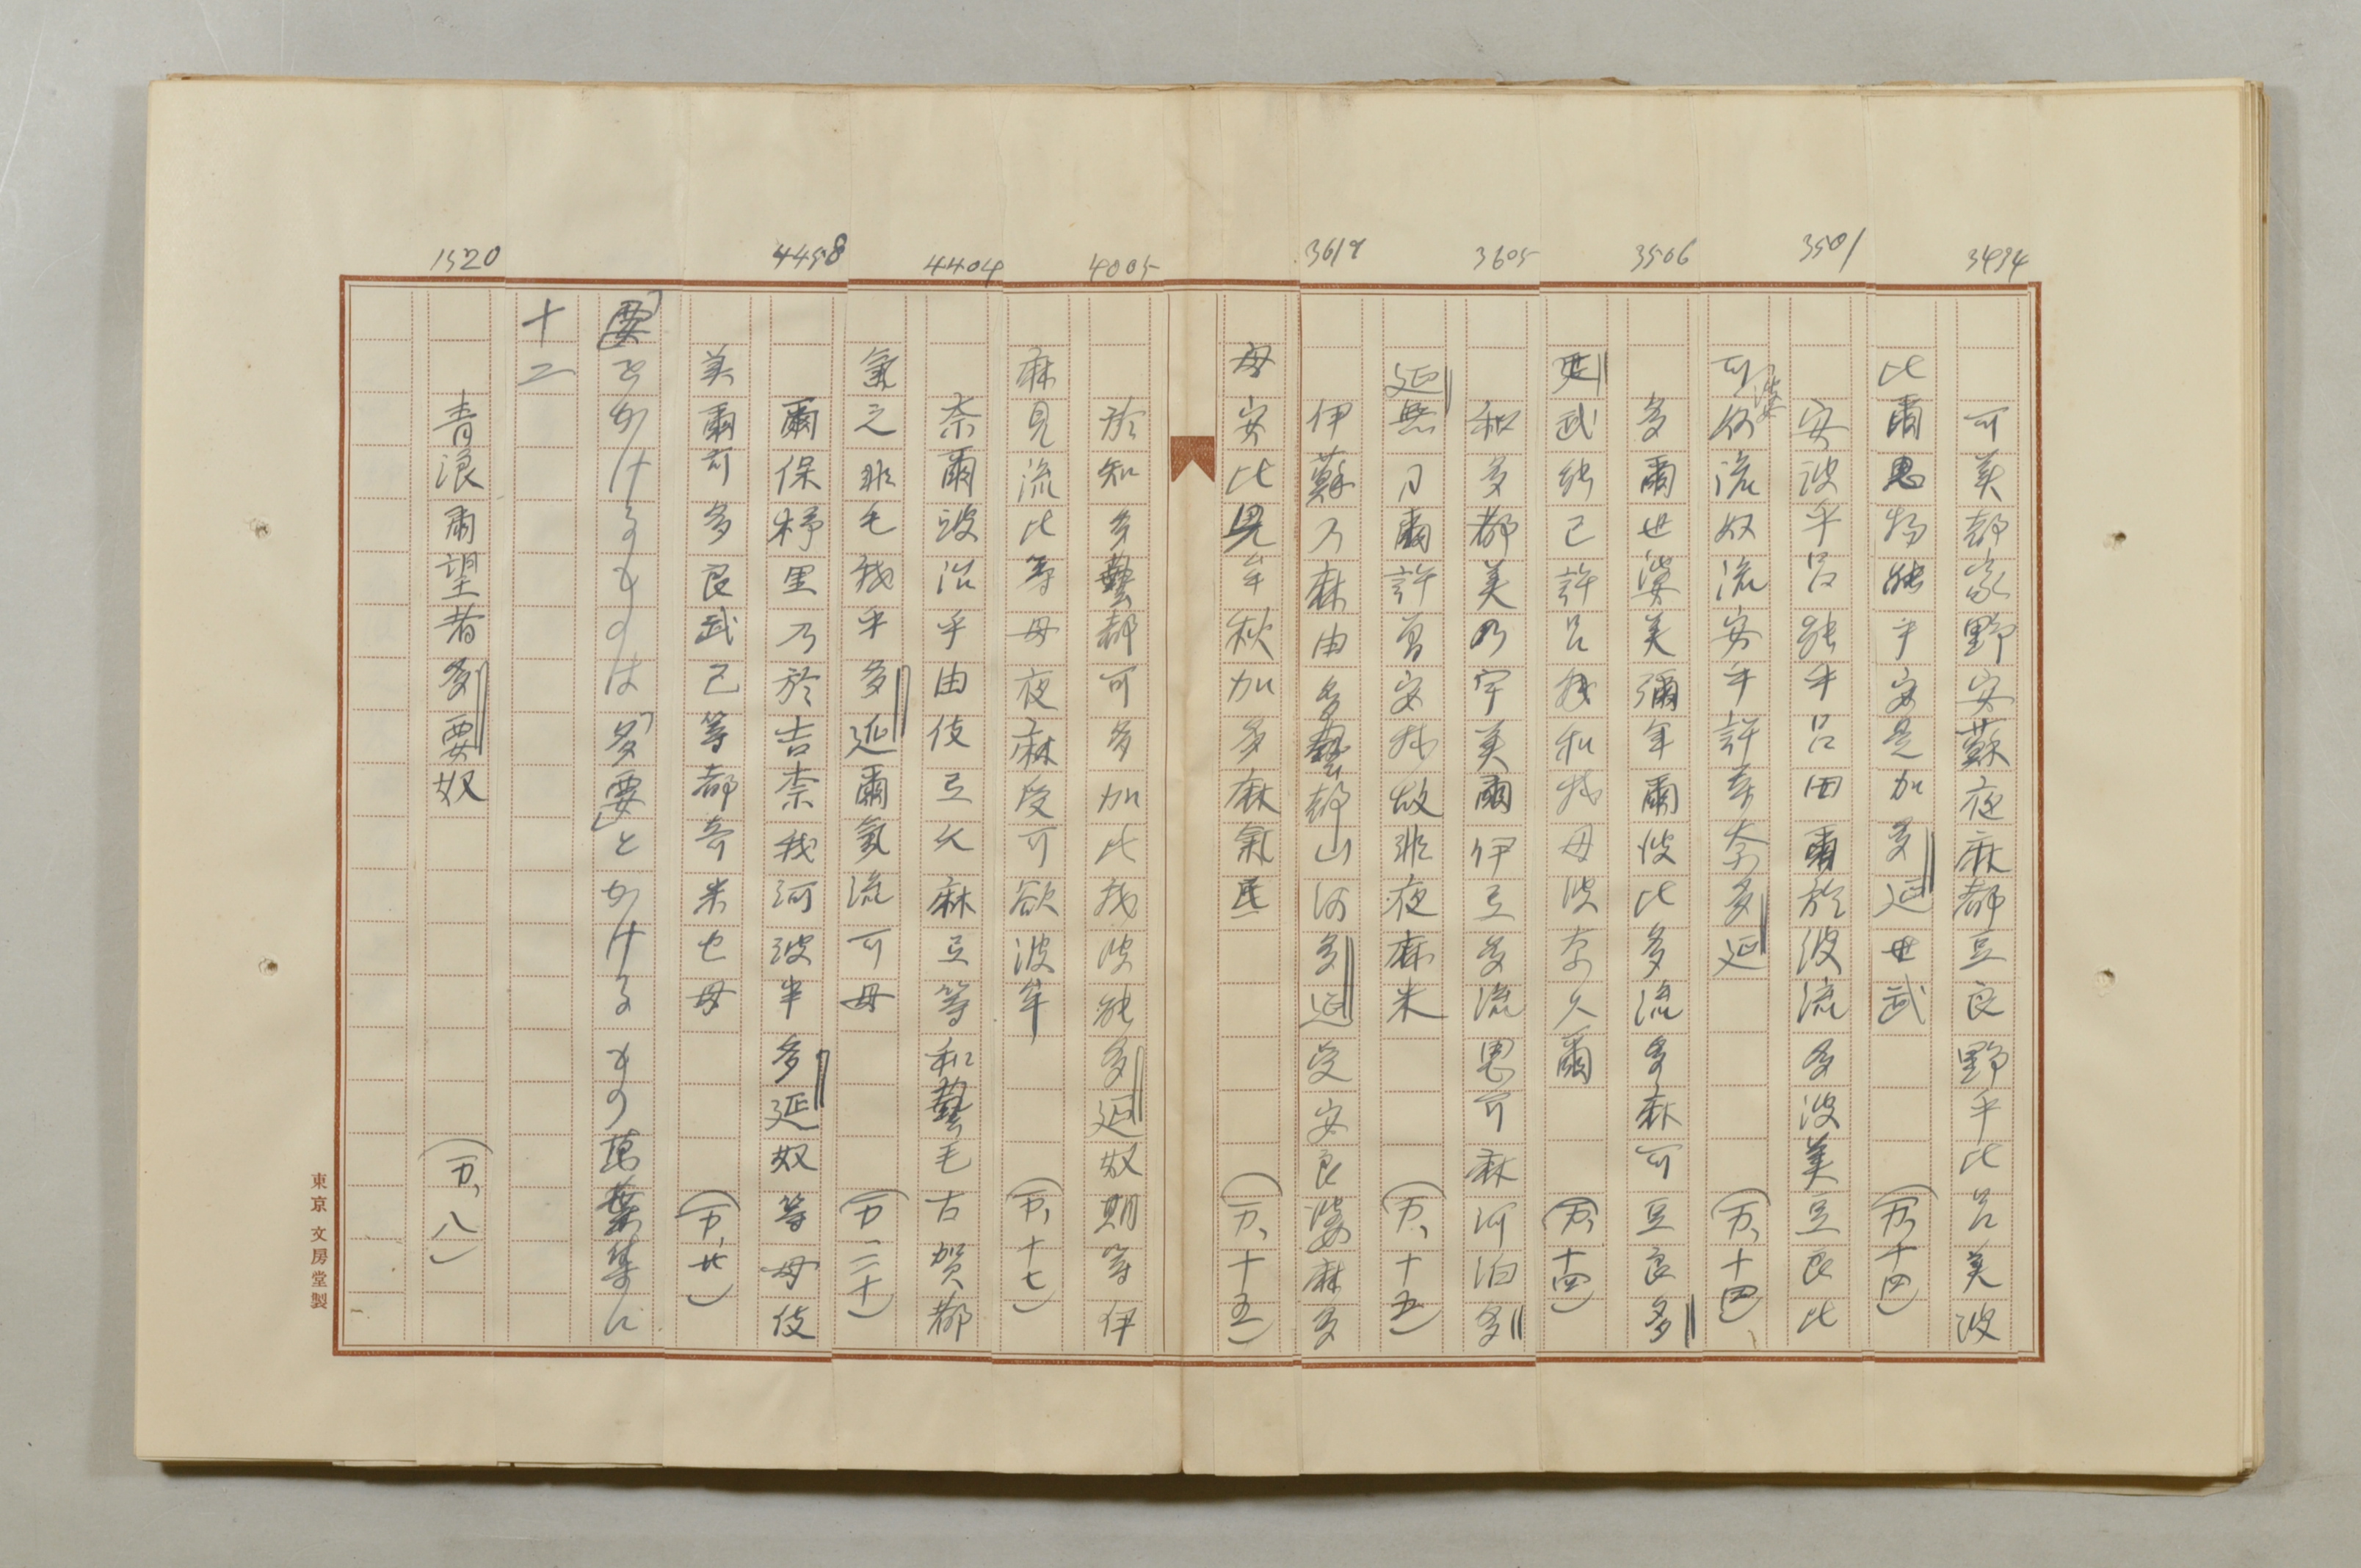 3434
可美都家野安蘇夜麻都豆良野乎比呂美波
比爾思物能乎安是加多延世武（万、十四）
3501
安波乎呂能乎呂田爾於波流多波美豆良比
可婆奴流奴流安乎許等奈多延（万、十四）
3506
多爾世婆美彌年爾波比多流多麻可豆良多
延武能己許呂我和我母波奈久爾（万、十四）
3605
和多都美乃宇美爾伊豆多流思可麻河泊多
延無日爾許曽安我故非夜麻米（万、十五）
3619
伊蘇乃麻由多藝都山河多延受安良婆麻多
母安比見牟秋加多麻氣弖（万、十五）
4005
於知多藝都可多加比我波能多延奴期等伊
麻見流比等母夜麻受可欲波牟（万、十七）
4404
奈爾波治乎由伎弖久麻弖等和藝毛古賀都
氣之非毛我乎多延爾氣流可母（万、二十）
4458
爾保杼里乃於吉奈我河波半多延奴等母伎
美爾可多良武己等都奇米也母（万、廿）
「要」をかけるものは「多要」とかけるもの萬葉集に
十二
1520
青浪爾望者多要奴（万、八）
東京 文房堂製